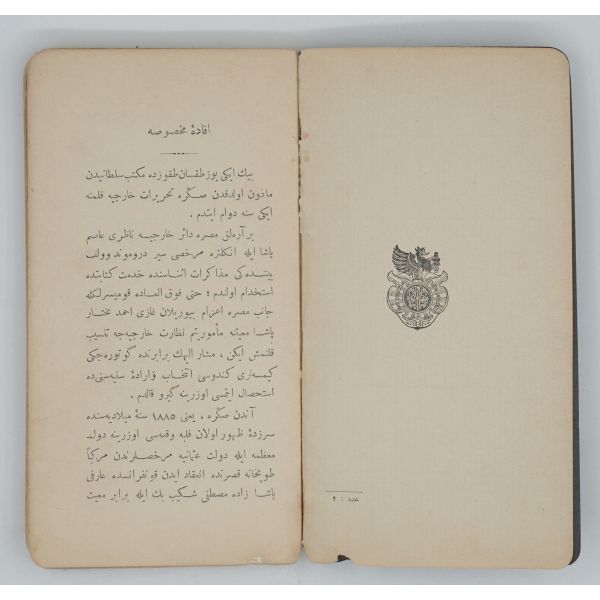 افادهٔ مخصوصه
بیك ایكی یوز طقسان طقوزده مكتب سلطانیدن
مأذون اولدقدن صكره تحریرات خارجیه قلمنه
ایكی سنه دوام ایتدم .
بر آره‌لق مصره دائر خارجیه ناظری عاصم
پاشا ایله انكلتره مرخصی سیر دروموند وولف
بیننده‌كی مذاكرات اثناسنده خدمت كتابتده
استخدام اولندم ؛ حتی فوق العاده قومیسرلكله
جانب مصره اعزام بیوریلان غازی احمد مختار
پاشا معیتنه مأموریتم نظارت خارجیه‌جه تنسیب
قلنمش ایكن ، مشار الیهك برابرنده گوتوره‌جكی
كیمسه‌لری كندوسی انتخاب و اراده‌ٔ سنیه‌سنی ده
استحصال ایتمسی اوزرینه گیرو قالدم .
آندن صكره ، یعنی ١٨٨٥ سنهٔ میلادیه‌سنده
سرزدهٔ ظهور اولان فلبه وقعه‌سی اوزرینه دول
معظمه ایله دولت عثمانیه مرخصلرندن مركباً
طوپخانه قصرنده انعقاد ایدن قونفرانسده عارفی
پاشا زاده مصطفی شكیب بك ایله برابر معیت
عدد : ٢